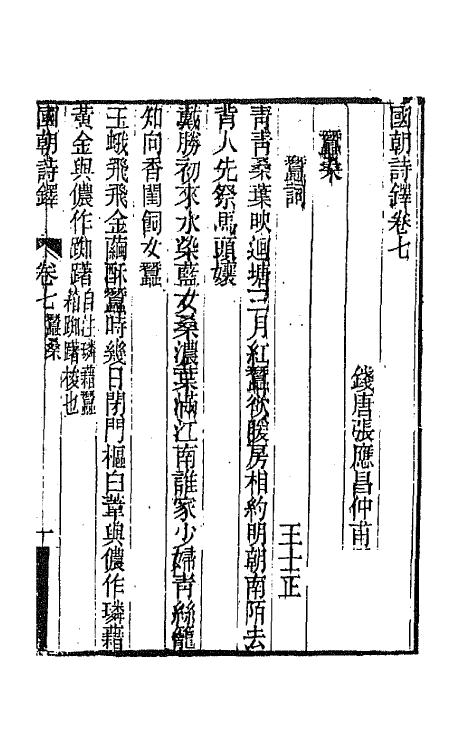 國朝詩鐸卷七
錢唐張應昌仲甫
蠶桑
蠶詞
王士正
青青桑葉映迴塘三月紅蠶欲暖房相約明朝南陌去
背人先祭馬頭孃
戴勝初來水染藍女桑濃葉滿江南誰家少婦青絲籠
知向香閨飼女蠶
玉蛾飛飛金繭酥蠶時幾日閉門樞白葦與儂作璘藉
黃金與儂作踟躇自注璘藉蠶
箔踟躇梭也
國朝詩鐸
卷七蠶桑
十